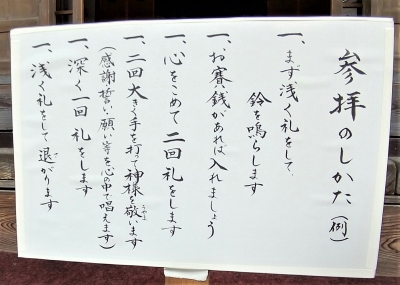 参拝のしかた(例)
一、まず、浅く礼をして、
鈴を鳴らします
一、お賽銭があれば入れましょう
一、心をこめて二回礼をします
一、二回大きく手を打って神様を敬います
うやま
(感謝誓い願い等を心の中で唱えます)
一、深く一回礼をします
一、浅く礼をして退がります